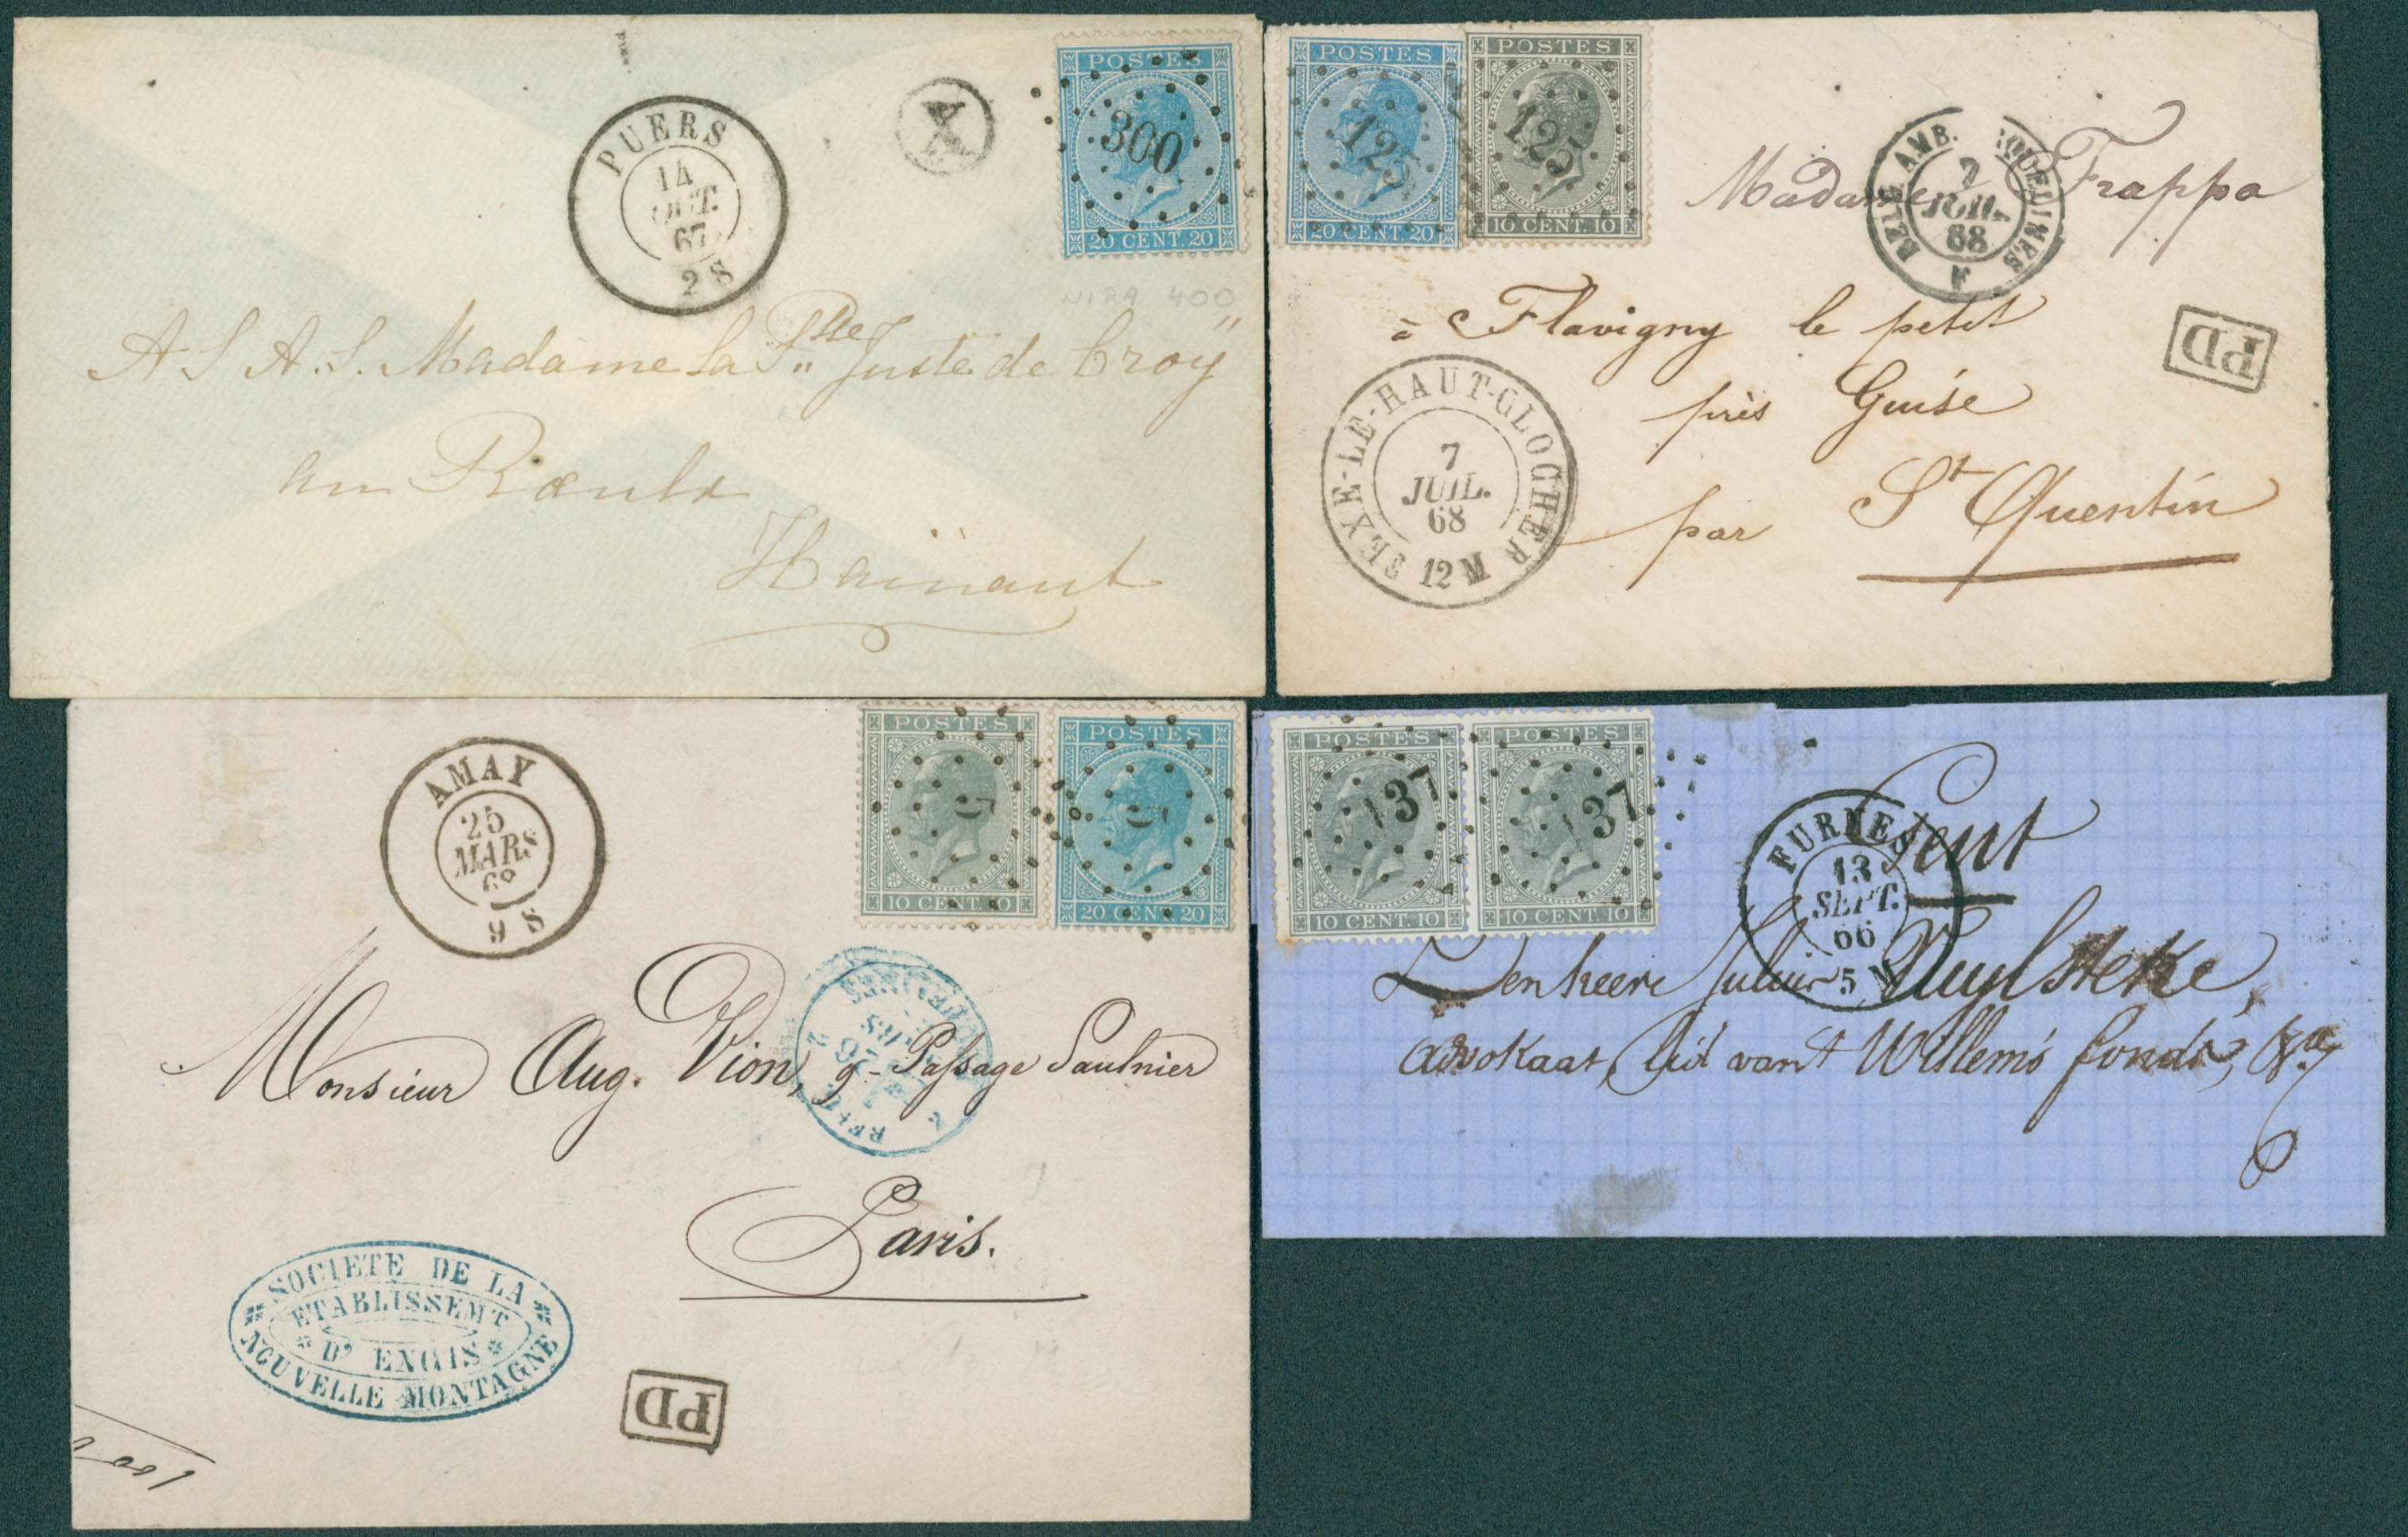 POSTES
300
20 CENT. 20
PUERS
14
OCT.
67
2 S
A
NIPA 400
A S A. S. Madame la Psse Juste de Croÿ
au Rœulx
Hainaut
POSTES
125
20 CENT. 20
POSTES
125
10 CENT. 10
Madame Frappa
BELG. AMB.
7
JUIL.
68
F
à Flavigny le petit
près Guise
par St Quentin
PD
FEXE-LE-HAUT-CLOCHER
7
JUIL.
68
12 M
AMAY
25
MARS
68
9 S
POSTES
5
10 CENT. 10
POSTES
5
20 CENT. 20
Monsieur Aug. Vion, 9 - Passage Saulnier
Paris.
SOCIETE DE LA
NOUVELLE MONTAGNE
ETABLISSEMT
D' ENGIS
PD
POSTES
137
10 CENT. 10
POSTES
137
10 CENT. 10
FURNES
13
SEPT.
66
5 M
Gent
Den heere Julius Vuylsteke,
advokaat, lid van't Willems fonds,